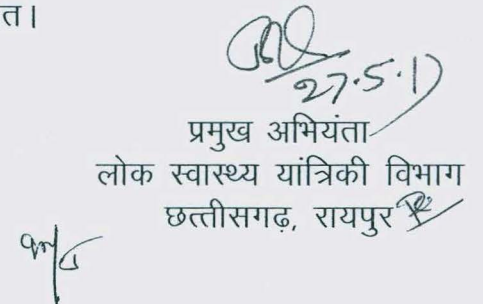 त।
27.5.17
प्रमुख अभियंता
लोक स्वास्थ्य यांत्रिकी विभाग
छत्तीसगढ़, रायपुर